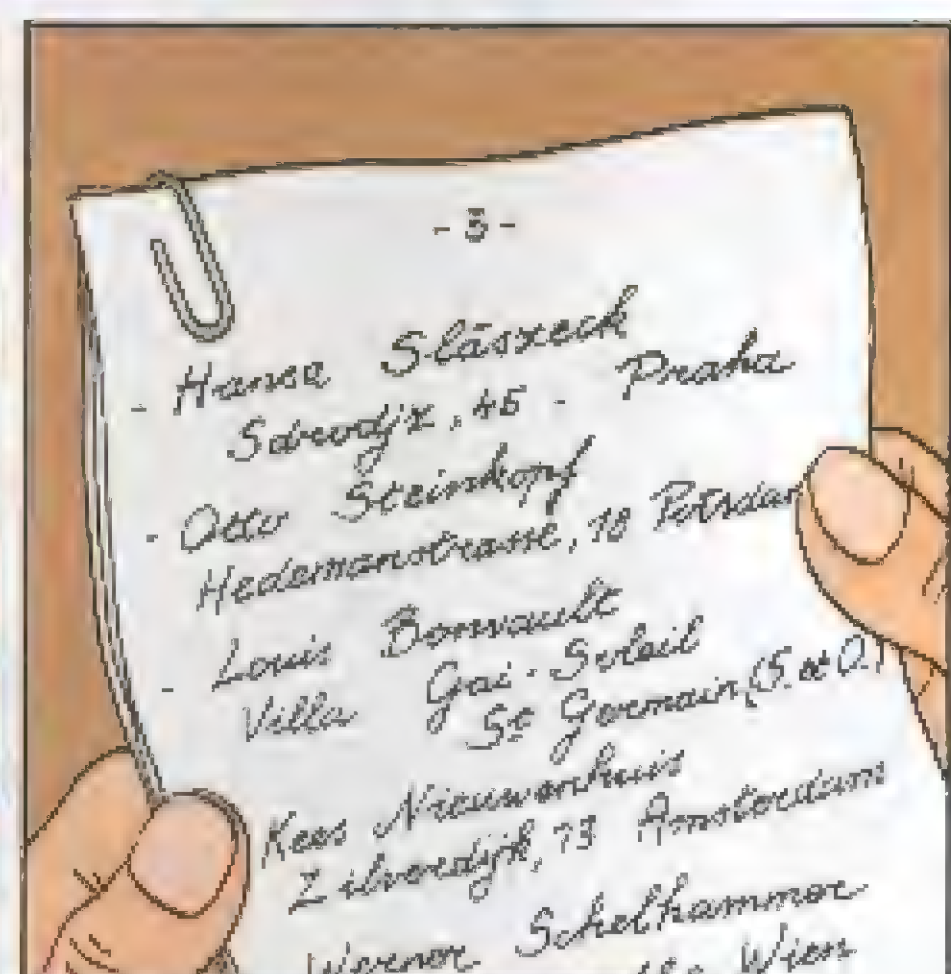 - 3 -
- Hanca Slásxeck
Sdrvodjx, 45 - Praha
- Otto Steinkopf
Hedemanstrasse, 18 Potsdam
- Louis Bonvault
Villa Gai-Soleil
St Germain (S. et O.)
Kees Nieuwenhuis
Zilverdijk, 73 Amsterdam
Werner Schelhammer
Wien